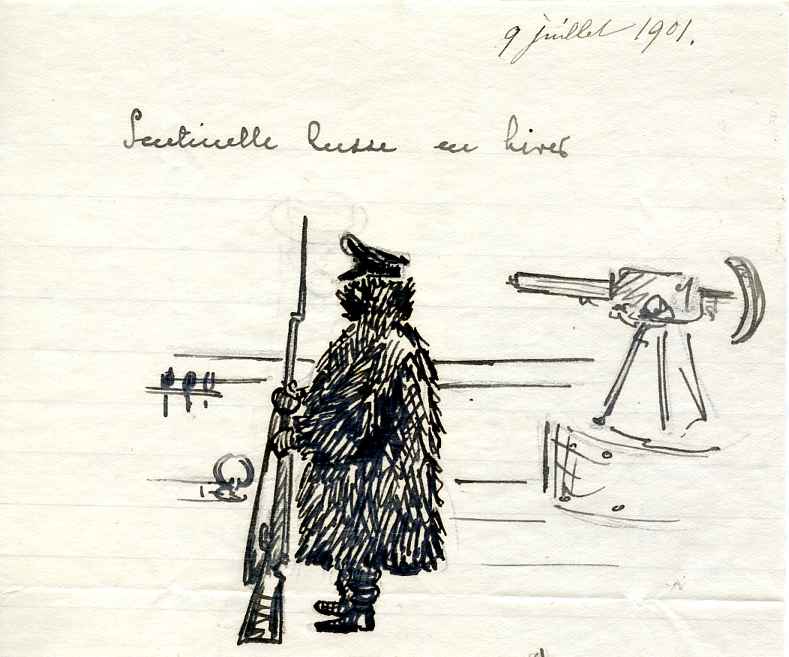 9 juillet 1901.
Sentinelle Russe en hiver